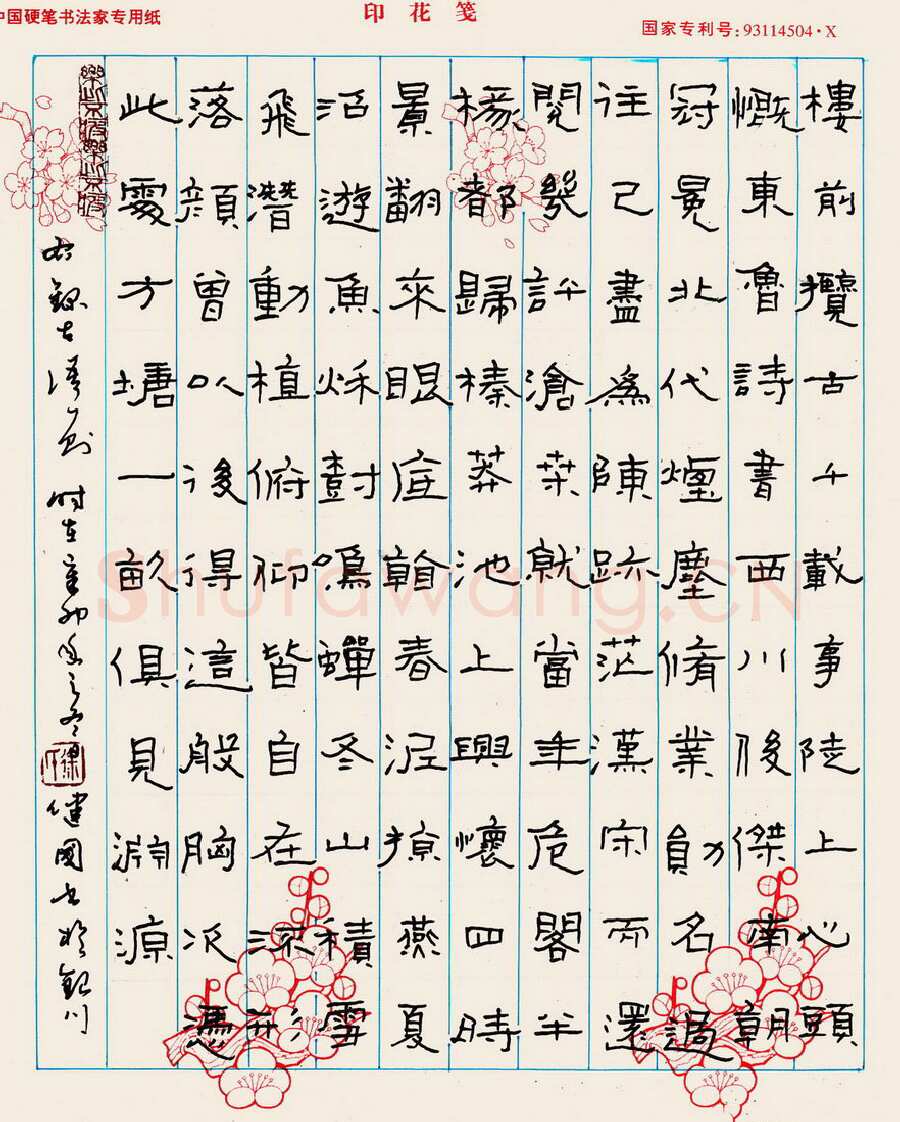 中国硬笔书法家专用纸
印花笺
国家专利号:93114504·X
樓前攬古千載事陡上心頭
慨東魯詩書西川俊傑南朝
冠冕北代煙塵脩業勛名過
往已盡為陳跡茫漢宋而還
閱幾許滄桑就當年危閣半
椽都歸榛莽池上興懷四時
景翻來眼底翰春泥掠燕夏
沼遊魚秌樹鳴蟬冬山積雪
飛潛動植俯仰皆自在流形
落顏曾以後得這般胸次憑
此處方塘一畝俱見淵源
右錄古語一則 時在辛卯年之冬 健國書於銀川
Shufawang.CN